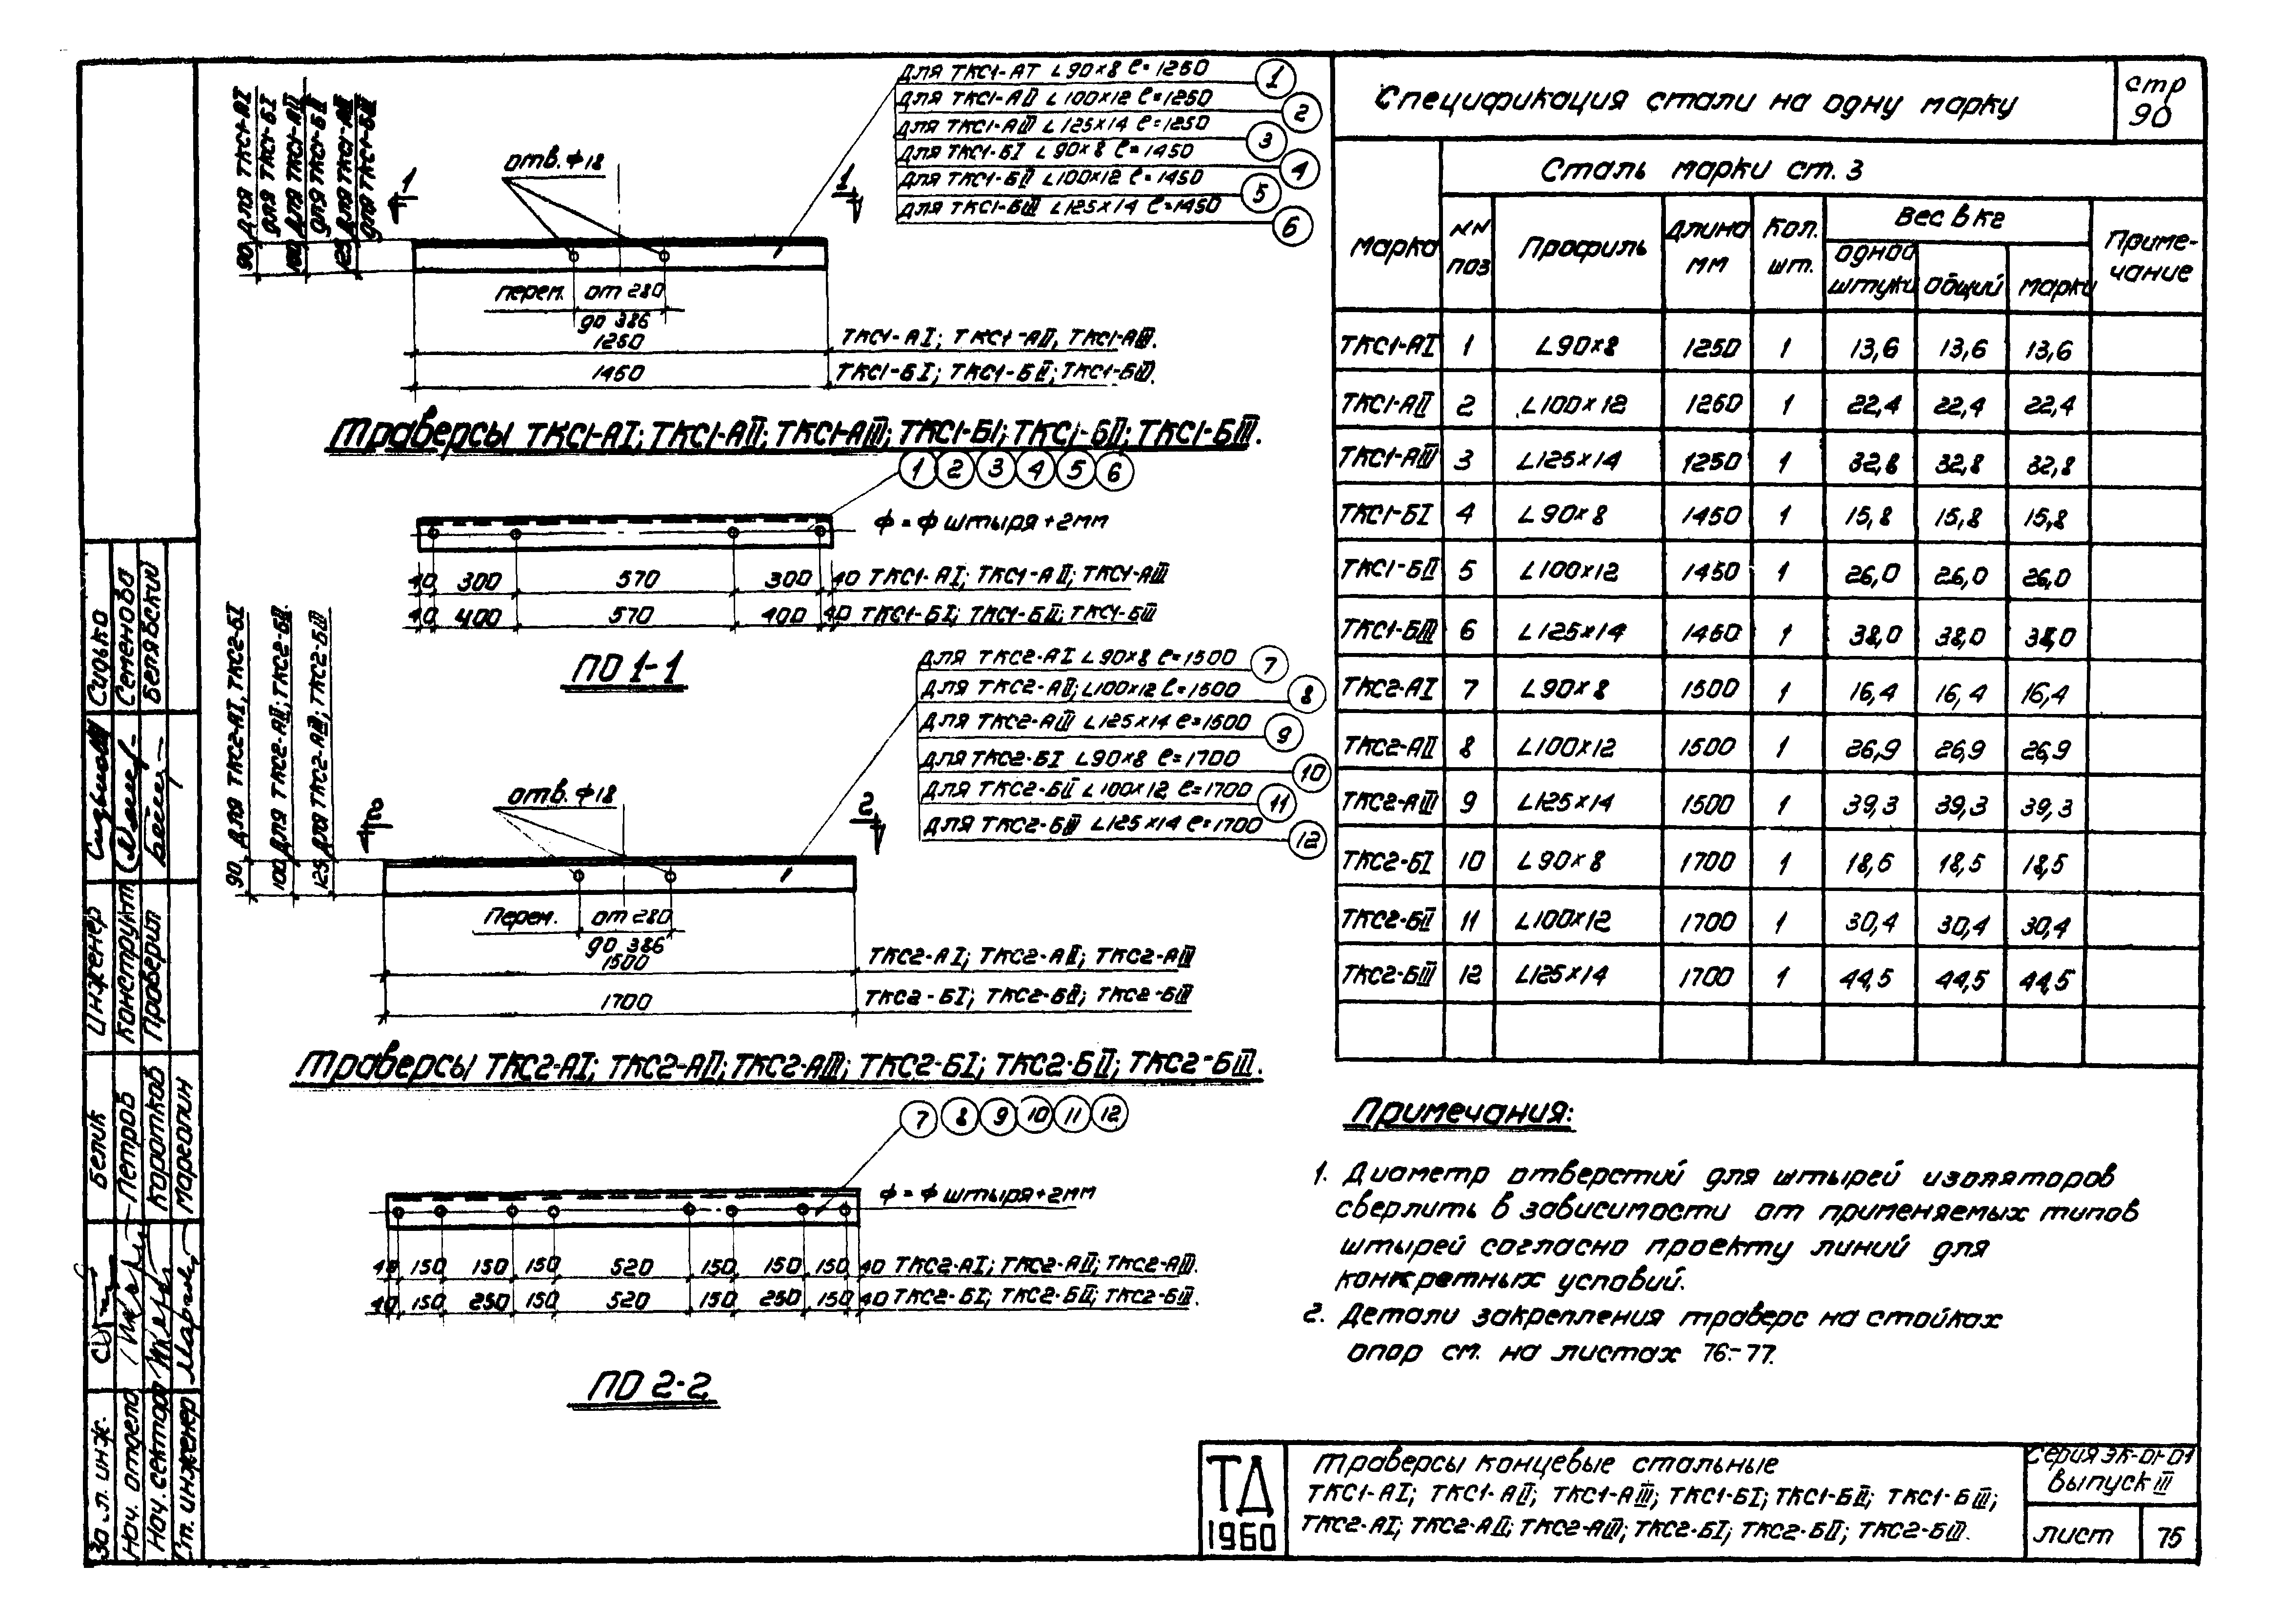 для ТКС1-АI L90×8 ℓ=1250 1
для ТКС1-АII L100×12 ℓ=1250 2
для ТКС1-АIII L125×14 ℓ=1250 3
для ТКС1-БI L90×8 ℓ=1450 4
для ТКС1-БII L100×12 ℓ=1450 5
для ТКС1-БIII L125×14 ℓ=1450 6
90 для ТКС1-АI
для ТКС1-БI
100 для ТКС1-АII
для ТКС1-БII
125 для ТКС1-АIII
для ТКС1-БIII
1 1
отв. ф18
перем. от 280
до 386
1250 ТКС1-АI; ТКС1-АII, ТКС1-АIII.
1450 ТКС1-БI; ТКС1-БII; ТКС1-БIII.
Траверсы ТКС1-АI; ТКС1-АII; ТКС1-АIII; ТКС1-БI; ТКС1-БII; ТКС1-БIII.
1 2 3 4 5 6
ф = ф штыря + 2мм
40 300 570 300 40 ТКС1-АI; ТКС1-АII; ТКС1-АIII
40 400 570 400 40 ТКС1-БI; ТКС1-БII; ТКС1-БIII
ПО 1-1
для ТКС2-АI L90×8 ℓ=1500 7
для ТКС2-АII; L100×12 ℓ=1500 8
для ТКС2-АIII L125×14 ℓ=1500 9
для ТКС2-БI L90×8 ℓ=1700 10
для ТКС2-БII L100×12 ℓ=1700 11
для ТКС2-БIII L125×14 ℓ=1700 12
90 для ТКС2-АI, ТКС2-БI
100 для ТКС2-АII; ТКС2-БII.
125 для ТКС2-АIII; ТКС2-БIII
2 2
отв. ф18
Перем. от 280
до 386
1500 ТКС2-АI; ТКС2-АII; ТКС2-АIII
1700 ТКС2-БI; ТКС2-БII; ТКС2-БIII
Траверсы ТКС2-АI; ТКС2-АII; ТКС2-АIII; ТКС2-БI; ТКС2-БII; ТКС2-БIII.
7 8 9 10 11 12
ф = ф штыря + 2мм
40 150 150 150 520 150 150 150 40 ТКС2-АI; ТКС2-АII; ТКС2-АIII.
40 150 250 150 520 150 250 150 40 ТКС2-БI; ТКС2-БII; ТКС2-БIII.
ПО 2-2
Спецификация стали на одну марку
стр 90
Сталь марки ст. 3
Марка NN поз Профиль Длина мм Кол. шт. Вес в кг Приме-чание
одной штуки общий марки
ТКС1-АI 1 L90×8 1250 1 13,6 13,6 13,6
ТКС1-АII 2 L100×12 1250 1 22,4 22,4 22,4
ТКС1-АIII 3 L125×14 1250 1 32,8 32,8 32,8
ТКС1-БI 4 L90×8 1450 1 15,8 15,8 15,8
ТКС1-БII 5 L100×12 1450 1 26,0 26,0 26,0
ТКС1-БIII 6 L125×14 1450 1 38,0 38,0 38,0
ТКС2-АI 7 L90×8 1500 1 16,4 16,4 16,4
ТКС2-АII 8 L100×12 1500 1 26,9 26,9 26,9
ТКС2-АIII 9 L125×14 1500 1 39,3 39,3 39,3
ТКС2-БI 10 L90×8 1700 1 18,5 18,5 18,5
ТКС2-БII 11 L100×12 1700 1 30,4 30,4 30,4
ТКС2-БIII 12 L125×14 1700 1 44,5 44,5 44,5
Примечания:
1. Диаметр отверстий для штырей изоляторов
сверлить в зависимости от применяемых типов
штырей согласно проекту линий для
конкретных условий.
2. Детали закрепления траверс на стойках
опор см. на листах 76-77.
ТД
1960
Траверсы концевые стальные
ТКС1-АI; ТКС1-АII; ТКС1-АIII; ТКС1-БI; ТКС1-БII; ТКС1-БIII;
ТКС2-АI; ТКС2-АII; ТКС2-АIII; ТКС2-БI; ТКС2-БII; ТКС2-БIII.
Серия ЭК-01-01
Выпуск III
лист 75
Инженер Сидько
Конструкт Семенова
Проверил Белявский
Гл. инж. Белик
Нач. отдела Петров
Нач. сектора Коротков
Ст. инженер Марголин